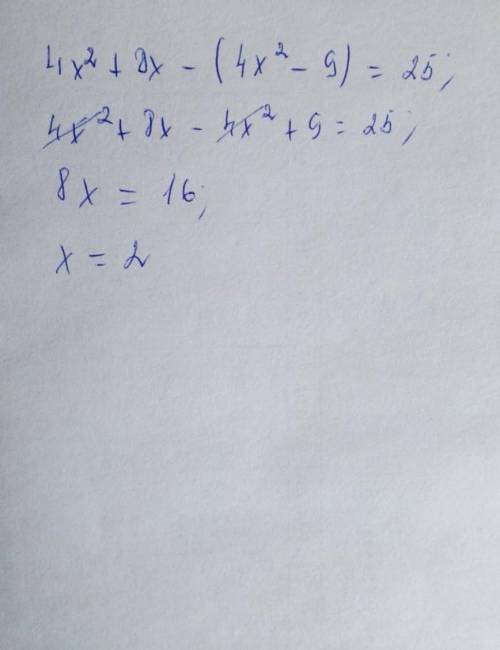 4x² + 8x - (4x² - 9) = 25;
4x² + 8x - 4x² + 9 = 25;
8x = 16;
x = 2